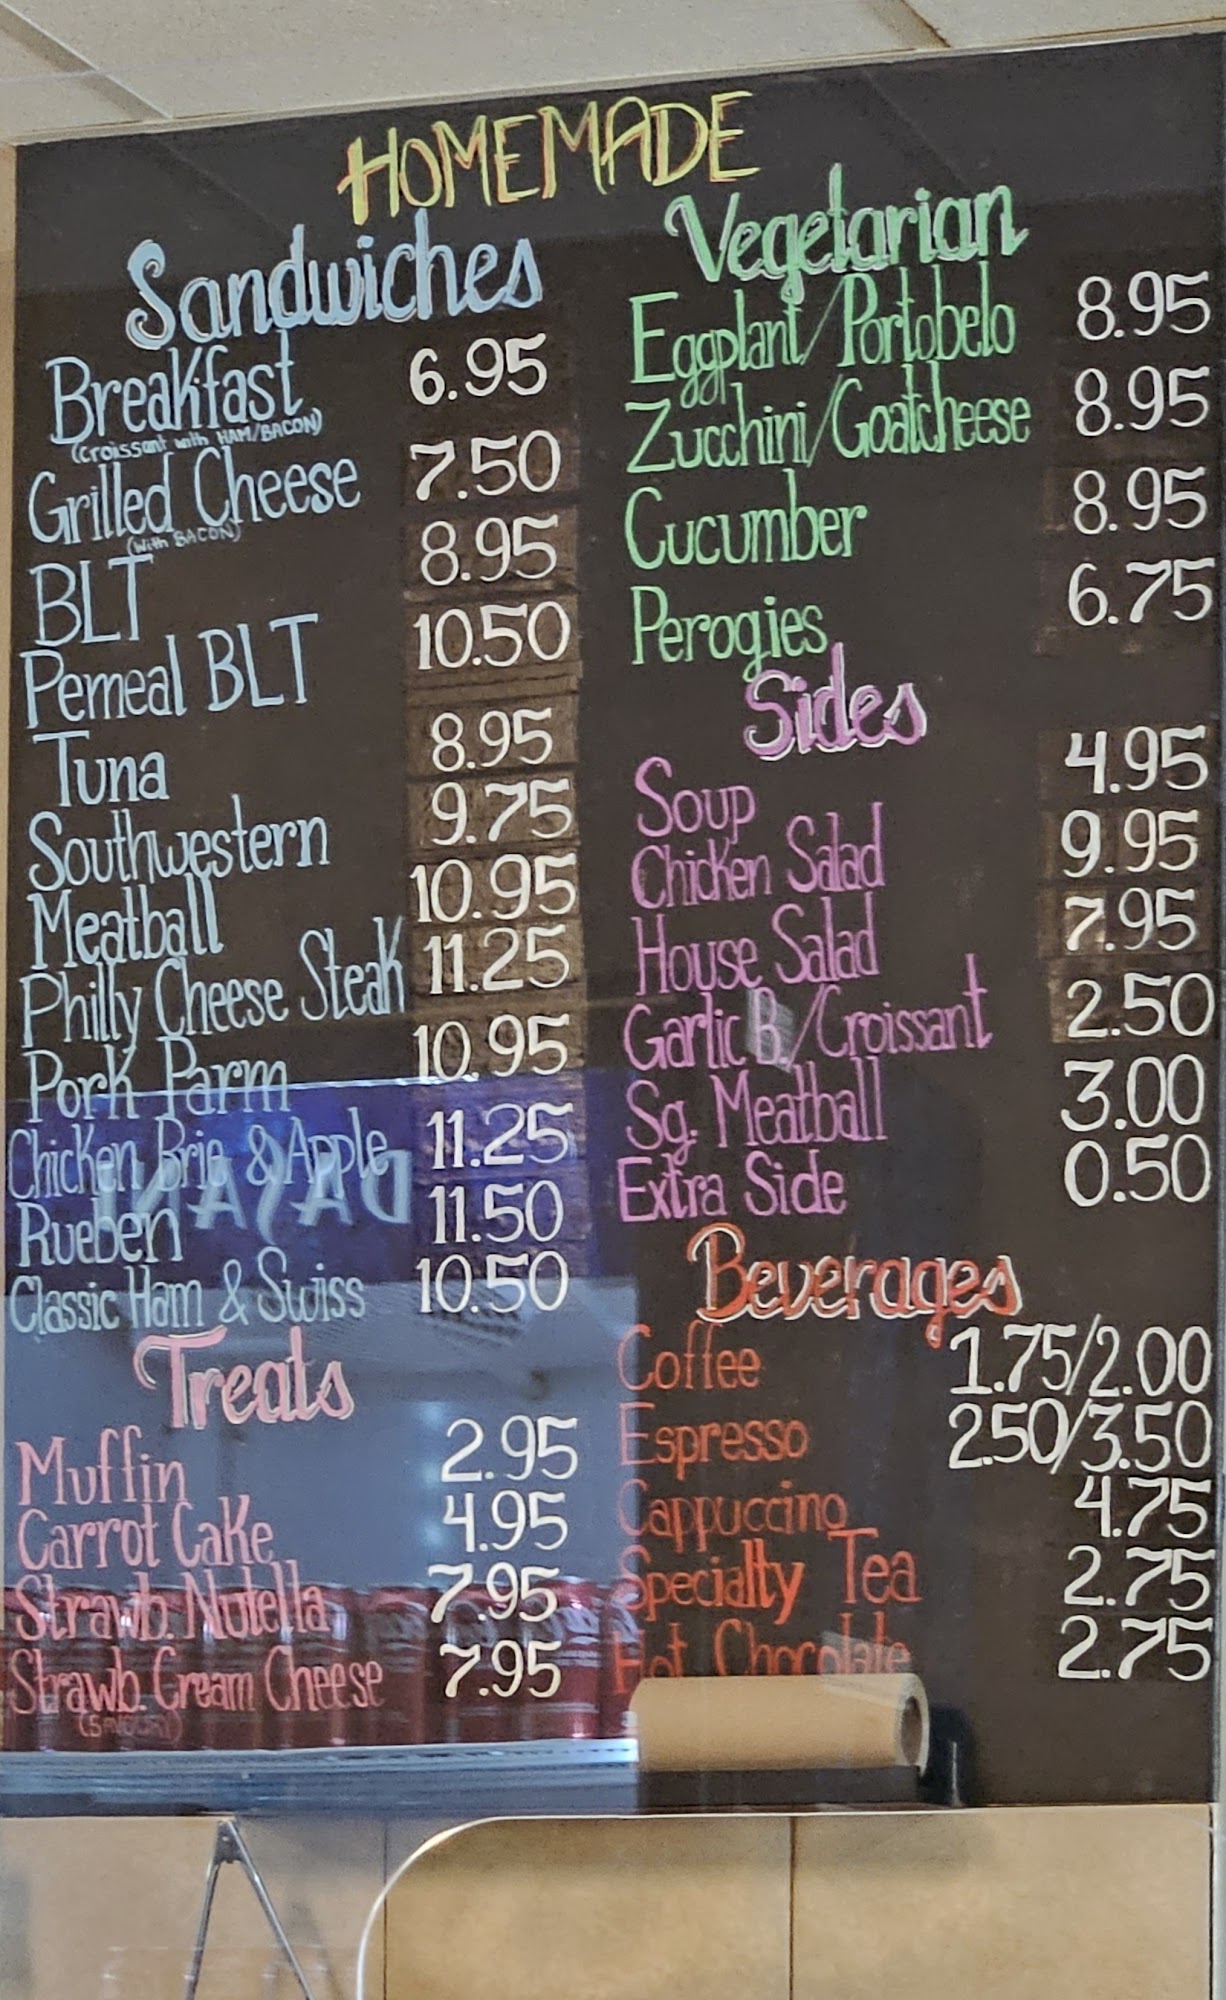 HOMEMADE
Sandwiches
Breakfast 6.95
(croissant with HAM/BACON)
Grilled Cheese 7.50
(with BACON)
BLT 8.95
Pemeal BLT 10.50
Tuna 8.95
Southwestern 9.75
Meatball 10.95
Philly Cheese Steak 11.25
Pork Parm 10.95
Chicken Brie & Apple 11.25
Rueben 11.50
Classic Ham & Swiss 10.50
Treats
Muffin 2.95
Carrot Cake 4.95
Strawb. Nutella 7.95
Strawb. Cream Cheese 7.95
Vegetarian
Eggplant/Portobelo 8.95
Zucchini/Goatcheese 8.95
Cucumber 8.95
Perogies 6.75
Sides
Soup 4.95
Chicken Salad 9.95
House Salad 7.95
Garlic B./Croissant 2.50
Sg. Meatball 3.00
Extra Side 0.50
Beverages
Coffee 1.75/2.00
Espresso 2.50/3.50
Cappuccino 4.75
Specialty Tea 2.75
Hot Chocolate 2.75